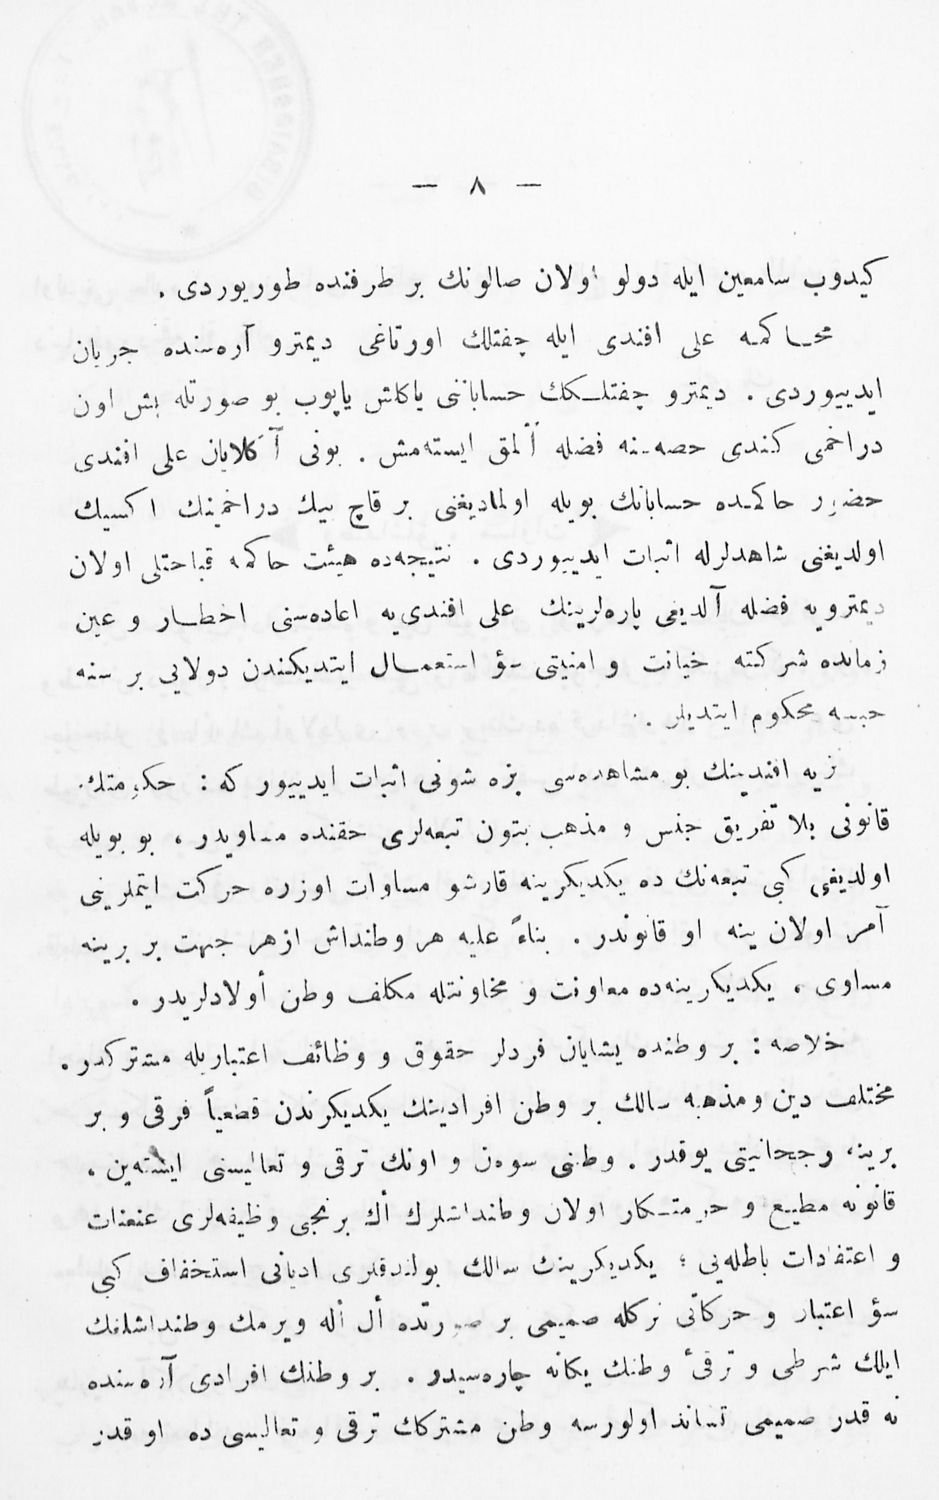 — ٨ —
كيدوب سامعين ايله دولو اولان صالونك بر طرفنده طوريوردى .
محاكمه على افندى ايله چفتلك اورتاغى ديمترو آره‌سنده جريان
ايدييوردى . ديمترو چفتلكك حساباتنى ياكلش ياپوب بو صورتله بش اون
دراخمى كندى حصه‌سنه فضله آلمق ايسته‌مش . بونى آكلايان على افندى
حضور حاكمده حساباتك بويله اولماديغنى بر قاچ بيك دراخمينك اكسيك
اولديغنى شاهدلرله اثبات ايدييوردى . نتيجه‌ده هيئت حاكمه قباحتلى اولان
ديمترويه فضله آلديغى پاره‌لرينك على افندى‌يه اعاده‌سنى اخطار و عين
زمانده شركته خيانت و امنيتى سؤ استعمال ايتديكندن دولايى بر سنه
حبسه محكوم ايتديلر .
نزيه افندينك بو مشاهده‌سى بزه شونى اثبات ايدييور كه : حكومتك
قانونى بلا تفريق جنس و مذهب بتون تبعه‌لرى حقنده مساويدر ، بو بويله
اولديغى كبى تبعه‌نك ده يكديكرينه قارشو مساوات اوزره حركت ايتملرينى
آمر اولان ينه او قانوندر . بناءً عليه هر وطنداش ازهر جهت بر برينه
مساوى ، يكديكرينه‌ده معاونت و مخاونتله مكلف وطن أولادلريدر .
خلاصه : بر وطنده يشايان فردلر حقوق و وظائف اعتباريله مشتركدر .
مختلف دين ومذهبه سالك بر وطن افرادينك يكديكرندن قطعياً فرقى و بر
برينه رجحانيتى يوقدر . وطنى سوەن و اونك ترقى و تعاليسنى ايسته‌ين ،
قانونه مطيع و حرمتكار اولان وطنداشلرك أك برنجى وظيفه‌لرى عنعنات
و اعتقادات باطله‌يى ؛ يكديكرينك سالك بولندقلرى اديانى استخفاف كبى
سؤ اعتبار و حركاتى تركله صميمى بر صورتده أل أله ويرمك وطنداشلغك
ايلك شرطى و ترقىٔ وطنك يكانه چاره‌سيدر . بر وطنك افرادى آره‌سنده
نه قدر صميمى تساند اولورسه وطن مشتركك ترقى و تعاليسى ده او قدر